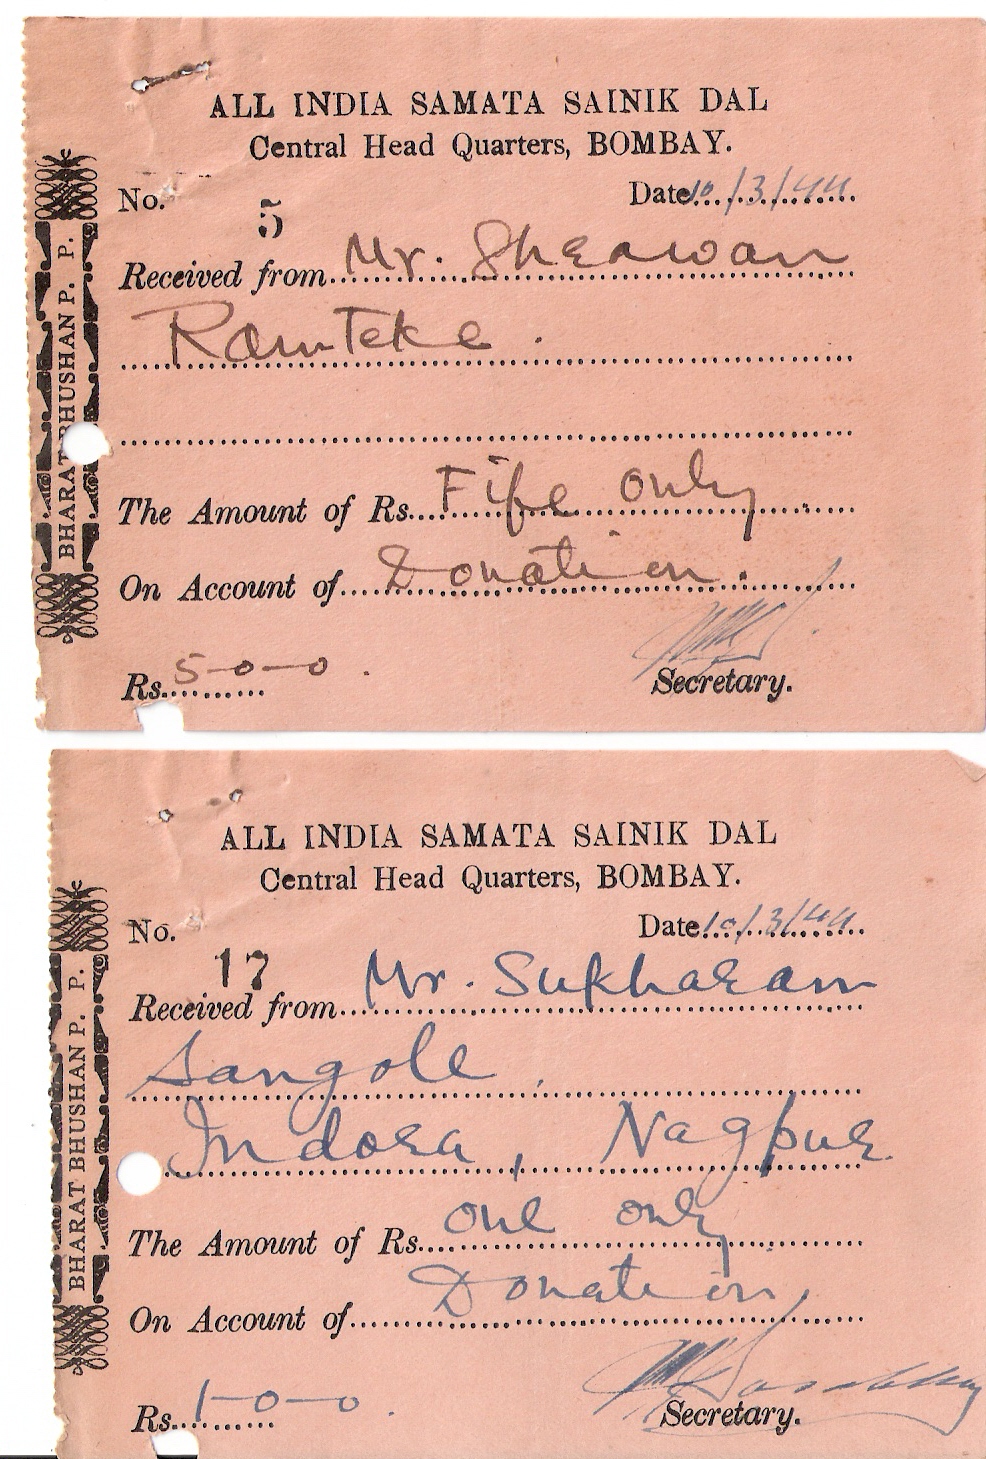 ALL INDIA SAMATA SAINIK DAL
Central Head Quarters, BOMBAY.
No. 5 Date 10/3/44
Received from Mr. Shrawan
Ramteke.
The Amount of Rs. Fife only
On Account of Donation.
Rs. 5-0-0.
Secretary.
BHARAT BHUSHAN P. P.
ALL INDIA SAMATA SAINIK DAL
Central Head Quarters, BOMBAY.
No. 17 Date 10/3/44
Received from Mr. Sukharam
Sangole,
Indora, Nagpur
The Amount of Rs. one only
On Account of Donation,
Rs. 1-0-0.
Secretary.
BHARAT BHUSHAN P. P.